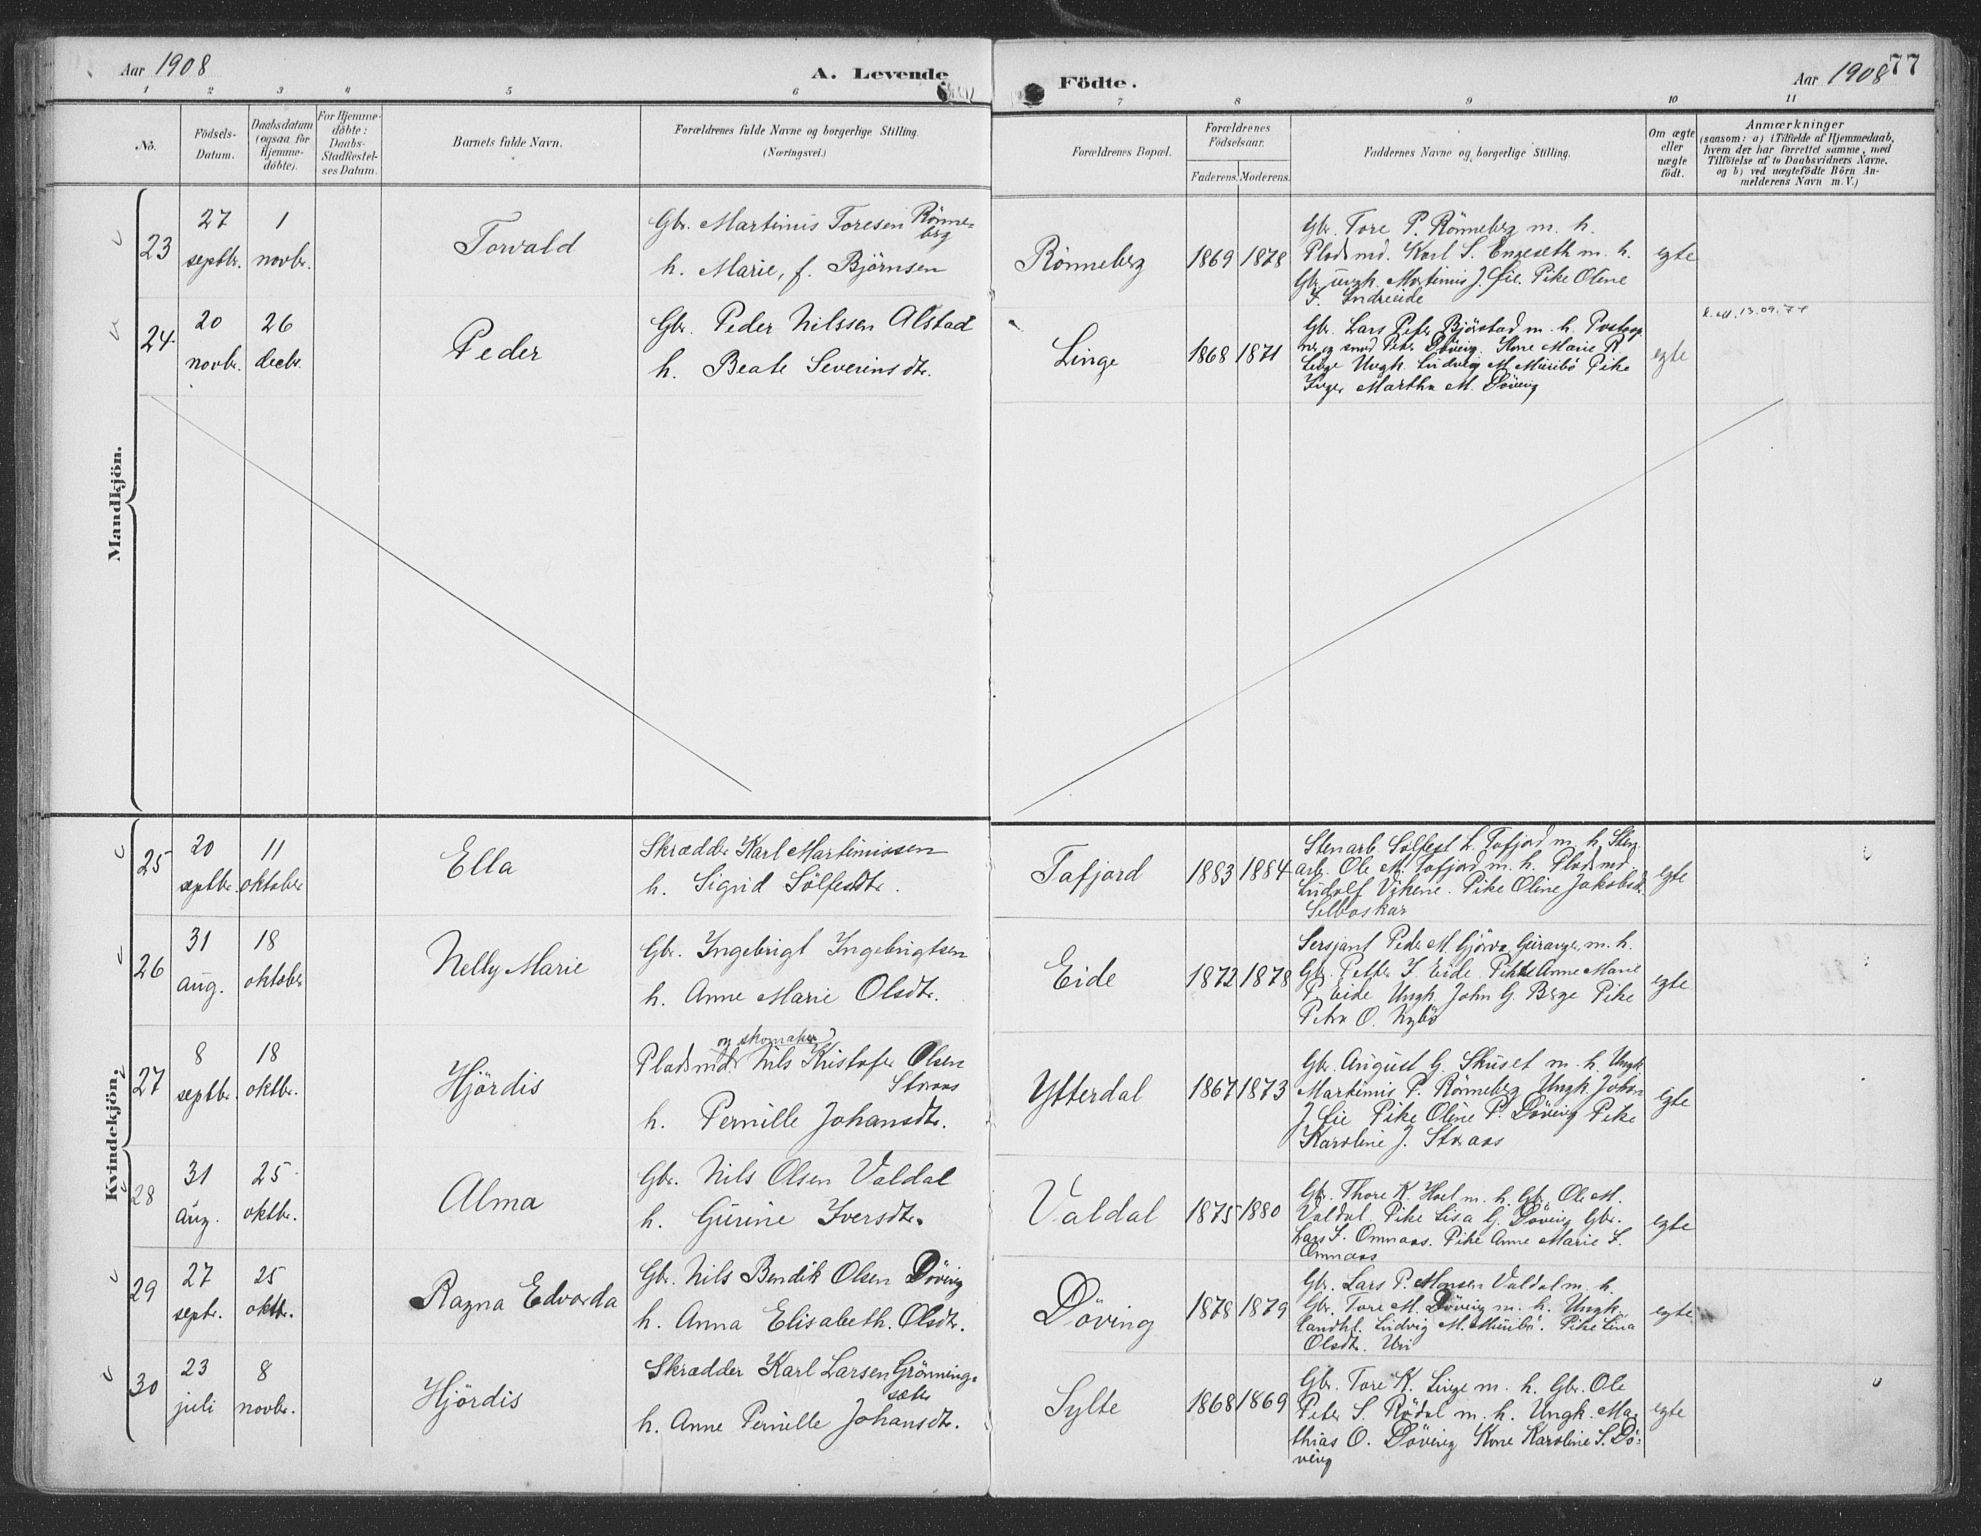 Aar 1908
A. Levende
Födte.
Aar 1908
77
1 2 3 4 5 6 7 8 9 10 11
No.
Födsels-
Datum.
Daabsdatum
(ogsaa for
Hjemme-
döbte).
For Hjemme-
döbte:
Daabs-
Stadfæstel-
ses Datum.
Barnets fulde Navn.
Forældrenes fulde Navne og borgerlige Stilling.
(Næringsvei.)
Forældrenes Bopæl.
Forældrenes
Födselsaar.
Faderens. Moderens.
Faddernes Navne og borgerlige Stilling.
Om ægte
eller
uægte
födt.
Anmærkninger
(saasom: a) i Tilfælde af Hjemmedaab,
hvem der har forrettet samme, med
Tilföielse af to Daabsvidners Navne,
og b) ved uægtefödte Börn An-
melderens Navn m. V.)
Mandkjön.
23
27
septbr.
1
novbr.
Torvald
Gbr. Martinus Toresen Rönne-
berg
h. Marie, f. Björnsen
Rönneberg
1869 1878
Gbr. Tore P. Rönneberg m. h.
Pladsmd. Karl S. Engeseth m. h.
Gbr. ungk. Martinus J. Lie. Pike Oline
I. Indreeide
egte
24
20
novbr.
26
decbr.
Peder
Gbr. Peder Nilssen Alstad
h. Beate Severinsdtr.
Linge
1868 1871
Gbr. Lars Peter Björstad m. h. Postaap
ner og smed Peter Döving. Kone Marie P.
Linge Ungk. Ludvig M. Muribö Pike
Inger Martha M. Döving
egte
13.09.74
Kvindekjön.
25
20
septbr.
11
oktober
Ella
Skrædder Karl Martinissen
h. Sigrid Sölfestdtr.
Tafjord
1883 1884
Stenarb Sölfest L. Tafjord m. h. Sten
arb. Ole M. Tafjord m. h. Pladsmd.
Ludolf Vikene. Pike Oline Jakobsdtr.
Selboskar
egte
26
31
aug.
18
oktober
Nelly Marie
Gbr. Ingebrigt Ingebrigtsen
h. Anne Marie Olsdtr.
Eide
1872 1878
Sersjant Peder M. Gjörva, Geiranger, m. h.
Gbr. Petter I. Eide. Pike Anne Marie
P. Eide Ungk. John G. Berge Pike
Petra O. Nybö
egte
27
8
septbr.
18
oktbr.
Hjördis
og skomaker
Pladsmd. Nils Kristofer Olsen
Straas
h. Pernille Johansdtr.
Ytterdal
1867 1873
Gbr. August G. Skuset m. h. Ungk.
Martinus P. Rönneberg Ungk. Johan
J. Lie Pike Oline P. Döving Pike
Karoline J. Straas
egte
28
31
aug.
25
oktbr.
Alma
Gbr. Nils Olsen Valdal
h. Gurine Iversdtr.
Valdal
1875 1880
Gbr. Thore K. Hoel m. h. Gbr. Ole M.
Valdal. Pike Lisa G. Döving Gbr.
Lars I. Omnaas. Pike Anne Marie I.
Omnaas
egte
29
27
septr.
25
oktbr.
Ragna Edvarda
Gbr. Nils Bendik Olsen Döving
h. Anna Elisabeth. Olsdtr.
Döving
1878 1879
Gbr. Lars P. Monsen Valdal m. h.
Gbr. Tore M. Döving m. h. Ungk.
landhl. Ludvig M. Muribö. Pike Lina
Olsdtr. Uri
egte
30
23
juli
8
novbr.
Hjördis
Skrædder Karl Larsen Grönning-
sæter
h. Anne Pernille Johansdtr.
Sylte
1868 1869
Gbr. Tore K. Linge m. h. Gbr. Ole
Peter S. Rödal m. h. Ungk. Ma-
thias O. Döving Kone Karoline S. Dö-
ving
egte